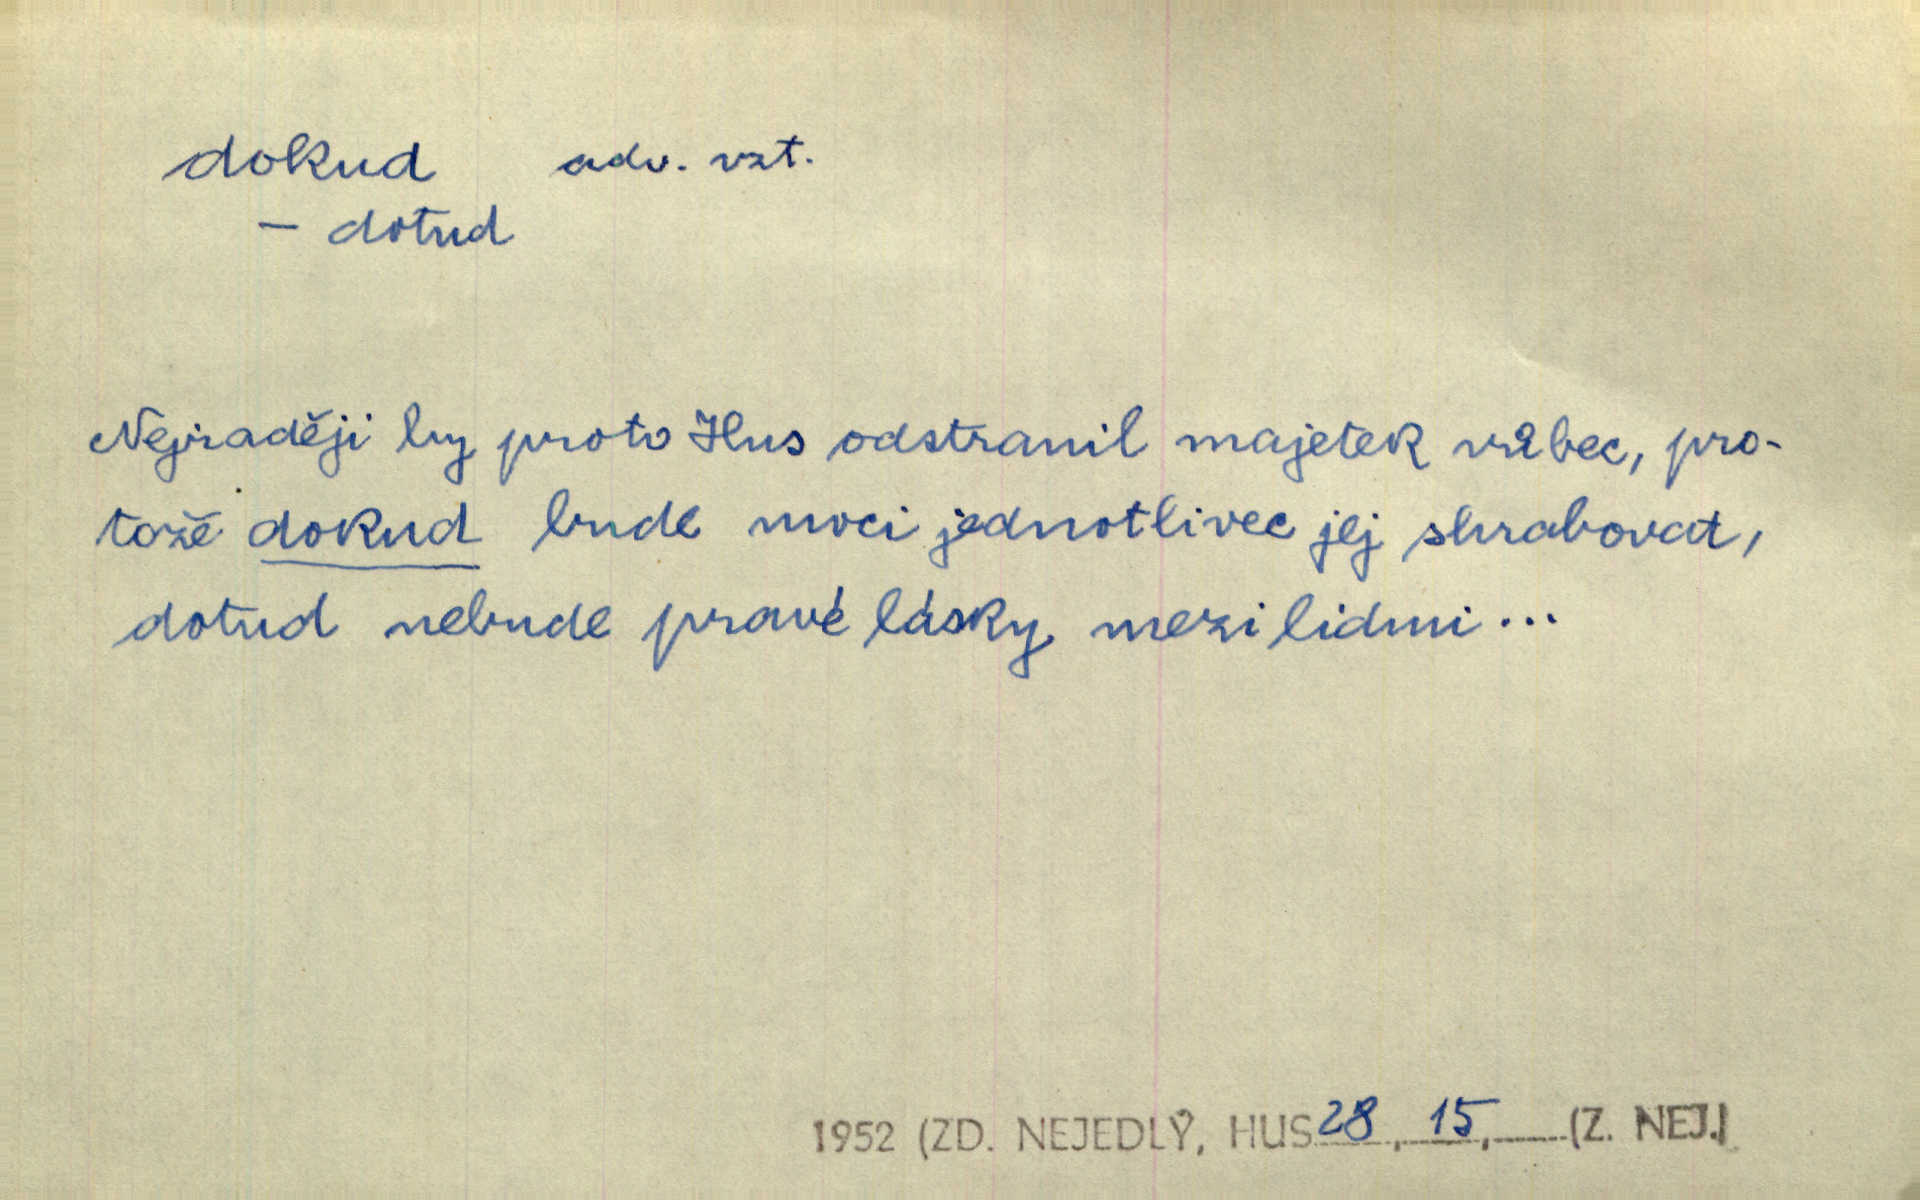 dokud adv. vzt.
– dotud
Nejraději by proto Hus odstranil majetek vůbec, pro-
tože dokud bude moci jednotlivec jej shrabovat,
dotud nebude pravé lásky mezi lidmi...
1952 (ZD. NEJEDLÝ, HUS 28, 15, (Z. NEJ.)